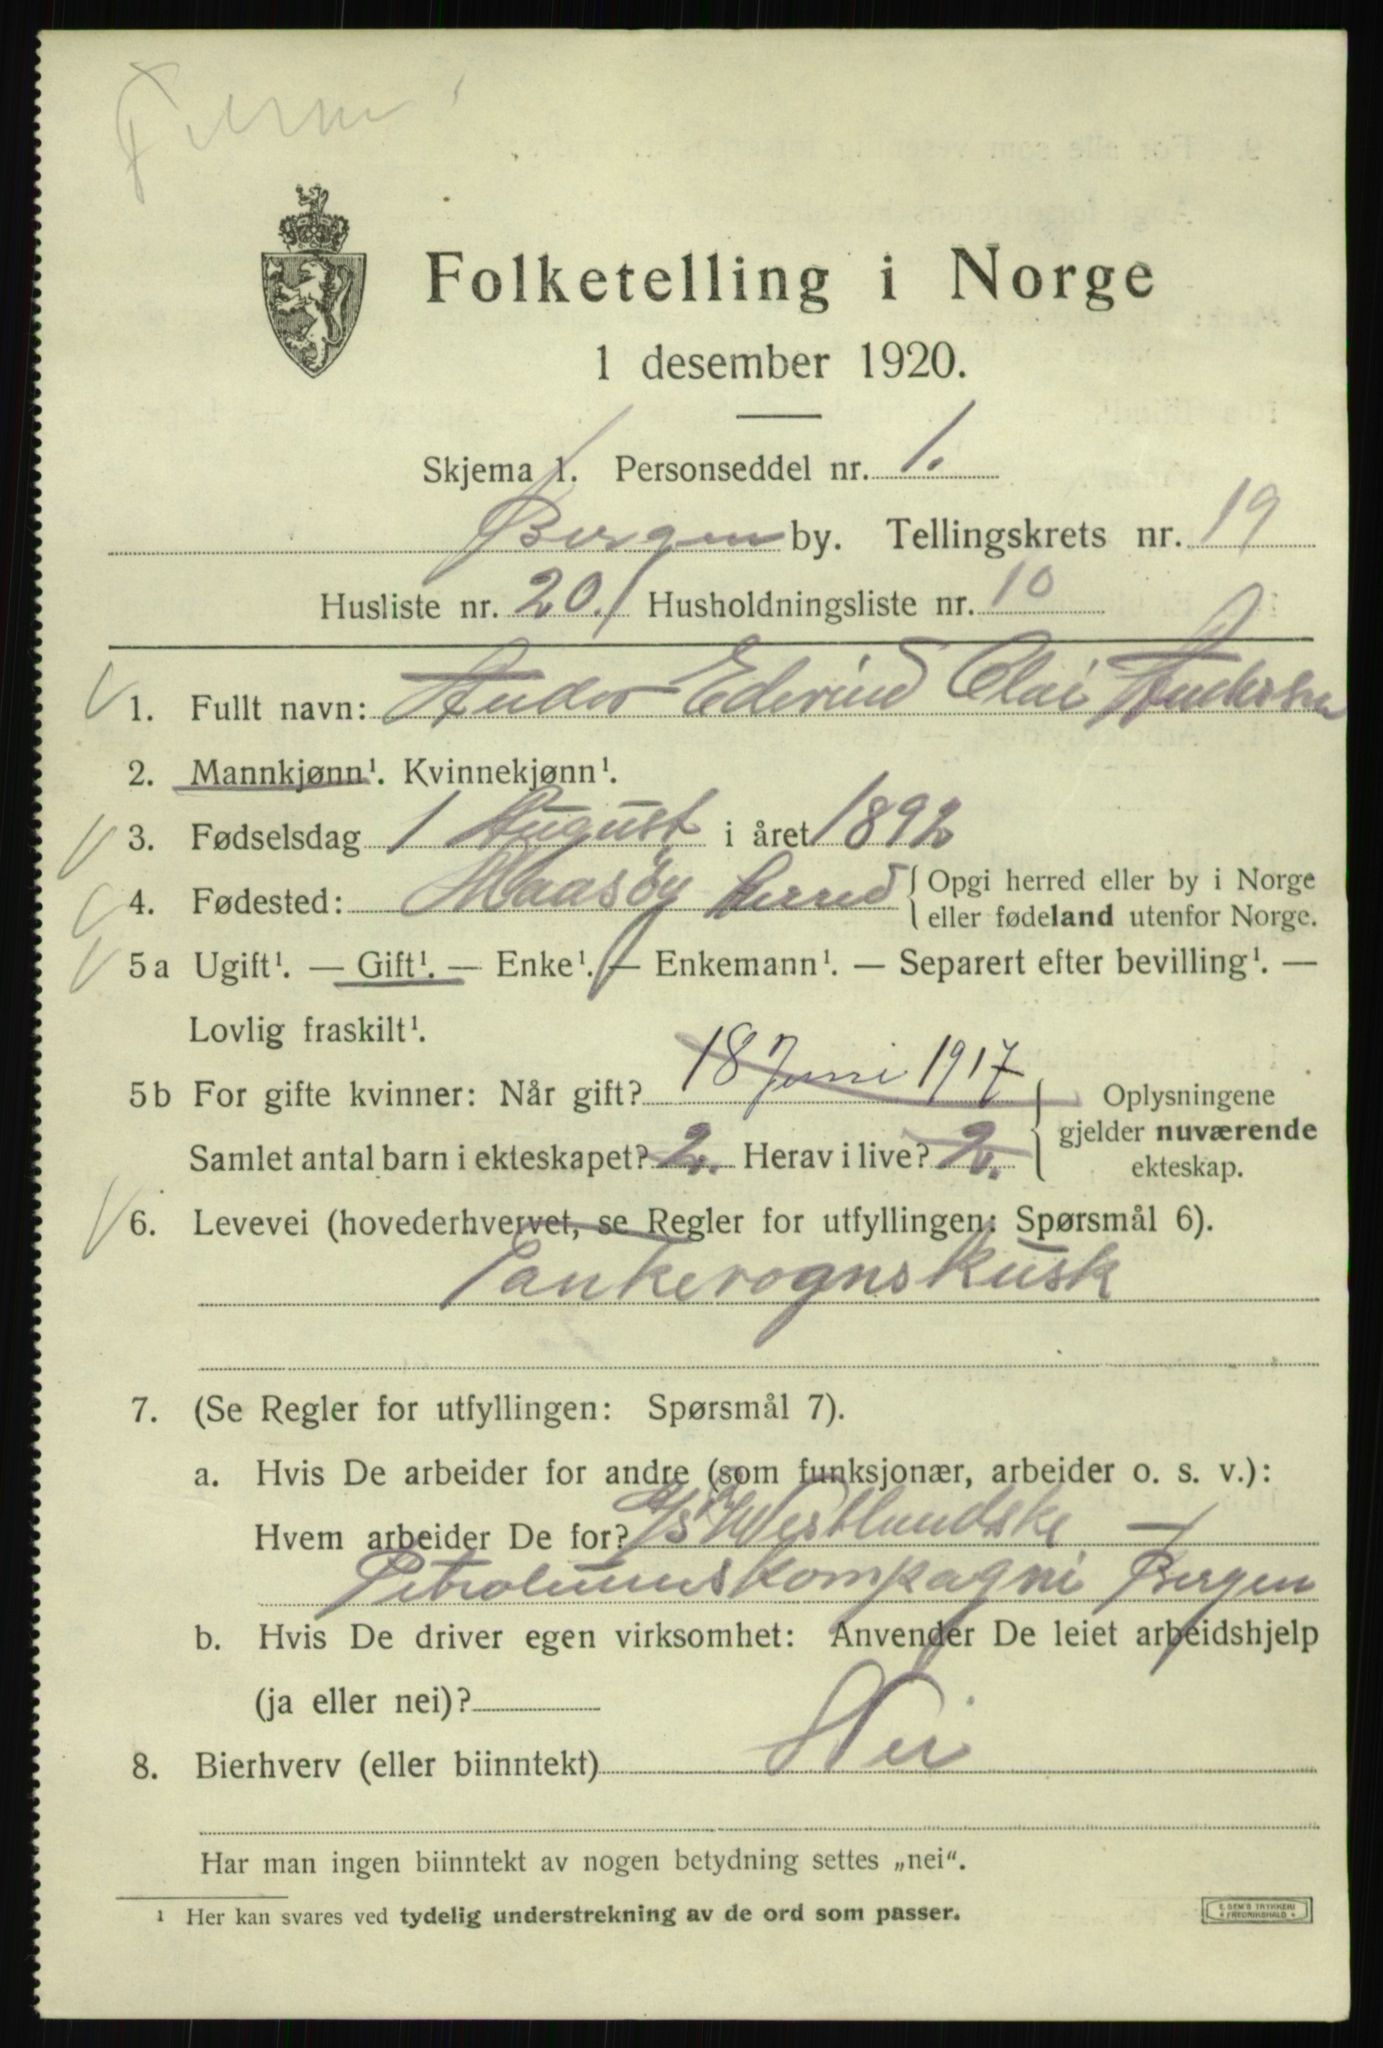 Folketelling i Norge
1 desember 1920.
Skjema 1. Personseddel nr. 1.
Bergen by. Tellingskrets nr. 19
Husliste nr. 20. Husholdningsliste nr. 10
1. Fullt navn: Andor Edevind Olai Andersen
2. Mannkjønn¹. Kvinnekjønn¹.
3. Fødselsdag 1 August i året 1892
4. Fødested: Maasöy herred { Opgi herred eller by i Norge
eller fødeland utenfor Norge.
5a Ugift¹. — Gift¹. — Enke¹. — Enkemann¹. — Separert efter bevilling¹. —
Lovlig fraskilt¹.
5b For gifte kvinner: Når gift? 18 Juni 1917 } Oplysningene
gjelder nuværende
Samlet antal barn i ekteskapet? 2. Herav i live? 2.
ekteskap.
6. Levevei (hovederhvervet, se Regler for utfyllingen: Spørsmål 6).
Tankevognskusk
7. (Se Regler for utfyllingen: Spørsmål 7).
a. Hvis De arbeider for andre (som funksjonær, arbeider o. s. v.):
Hvem arbeider De for? A/S Vestlandske —
Petroleumskompagni Bergen
b. Hvis De driver egen virksomhet: Anvender De leiet arbeidshjelp
(ja eller nei)?
8. Bierhverv (eller biinntekt) Nei
Har man ingen biinntekt av nogen betydning settes „nei“.
¹ Her kan svares ved tydelig understrekning av de ord som passer.
E. SEM'S TRYKKERI
FREDRIKSHALD